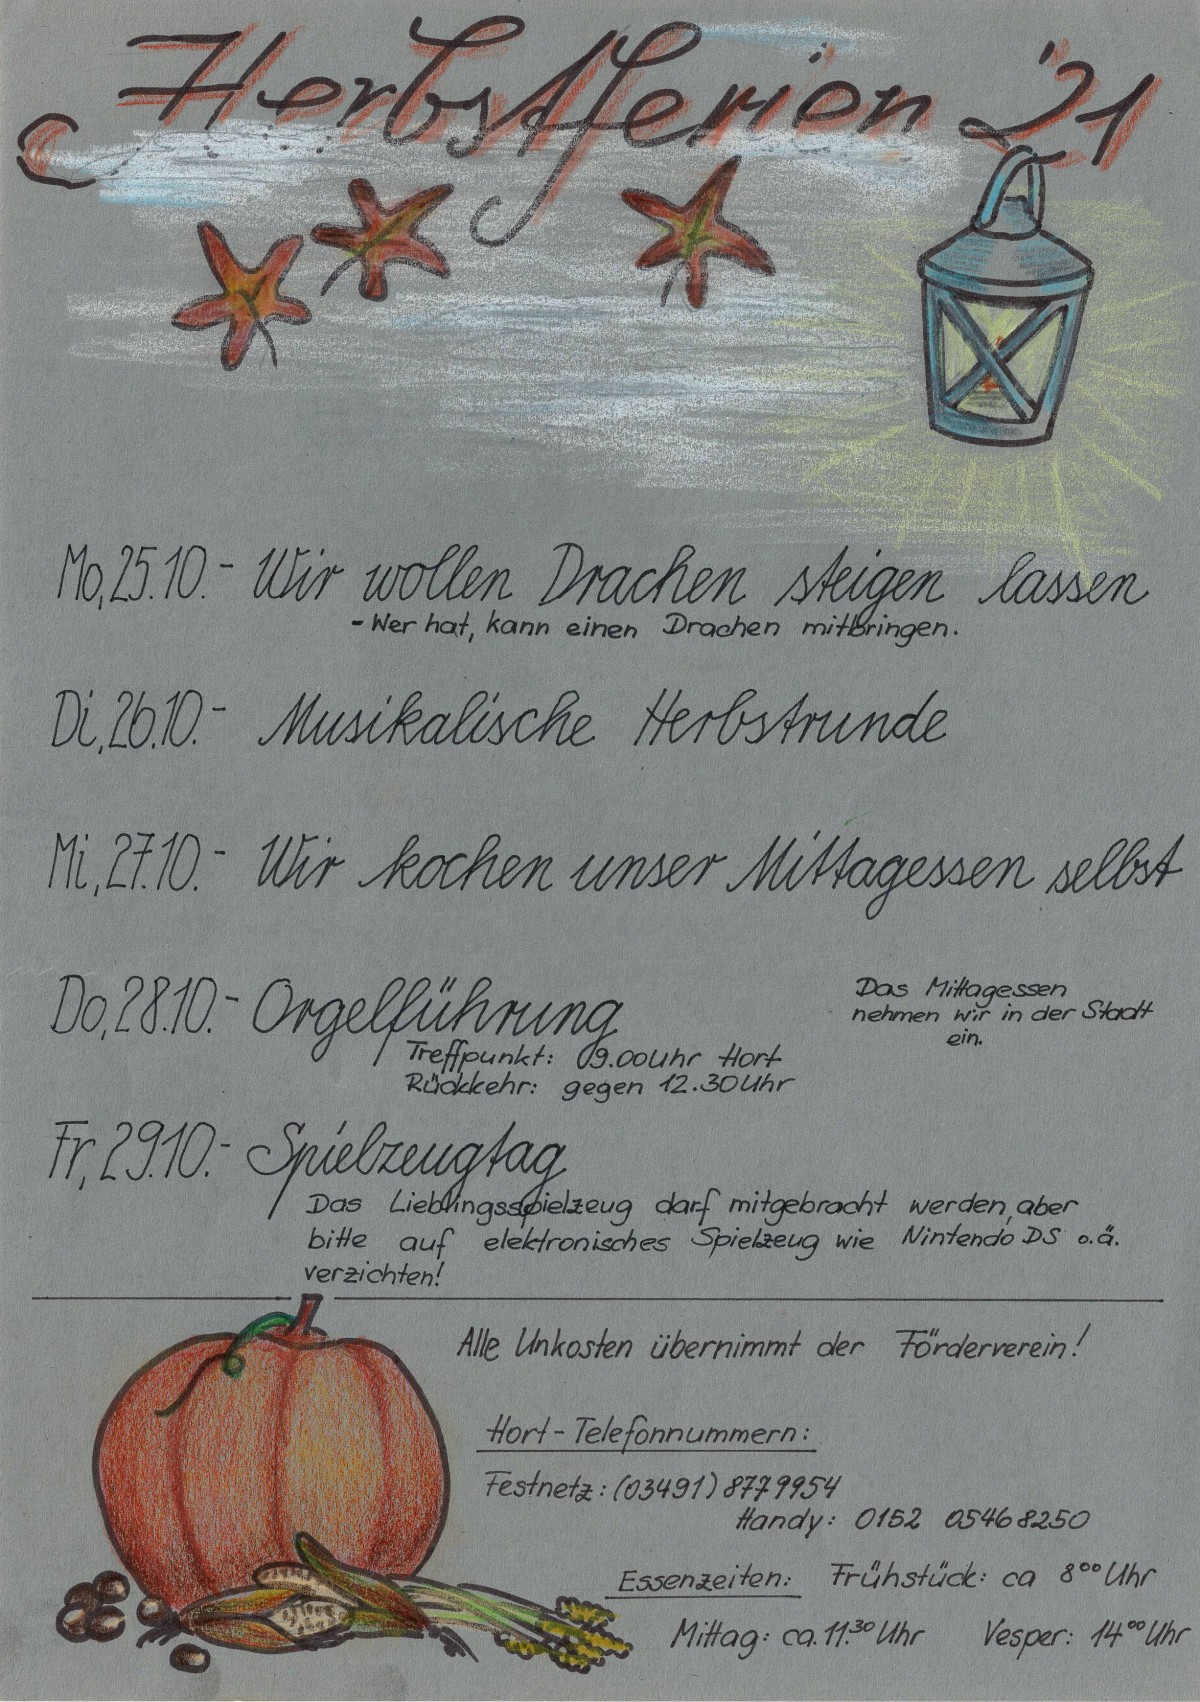 Herbstferien '21
Mo, 25.10. - Wir wollen Drachen steigen lassen
- Wer hat, kann einen Drachen mitbringen.
Di, 26.10. - Musikalische Herbstrunde
Mi, 27.10. - Wir kochen unser Mittagessen selbst
Do, 28.10. - Orgelführung
Das Mittagessen
nehmen wir in der Stadt
ein.
Treffpunkt: 09.00 Uhr Hort
Rückkehr: gegen 12.30 Uhr
Fr, 29.10. - Spielzeugtag
Das Lieblingsspielzeug darf mitgebracht werden, aber
bitte auf elektronisches Spielzeug wie Nintendo DS o.ä.
verzichten!
Alle Unkosten übernimmt der Förderverein!
Hort-Telefonnummern:
Festnetz: (03491) 8779954
Handy: 0152 05468250
Essenzeiten: Frühstück: ca 8⁰⁰ Uhr
Mittag: ca. 11.³⁰ Uhr Vesper: 14⁰⁰ Uhr